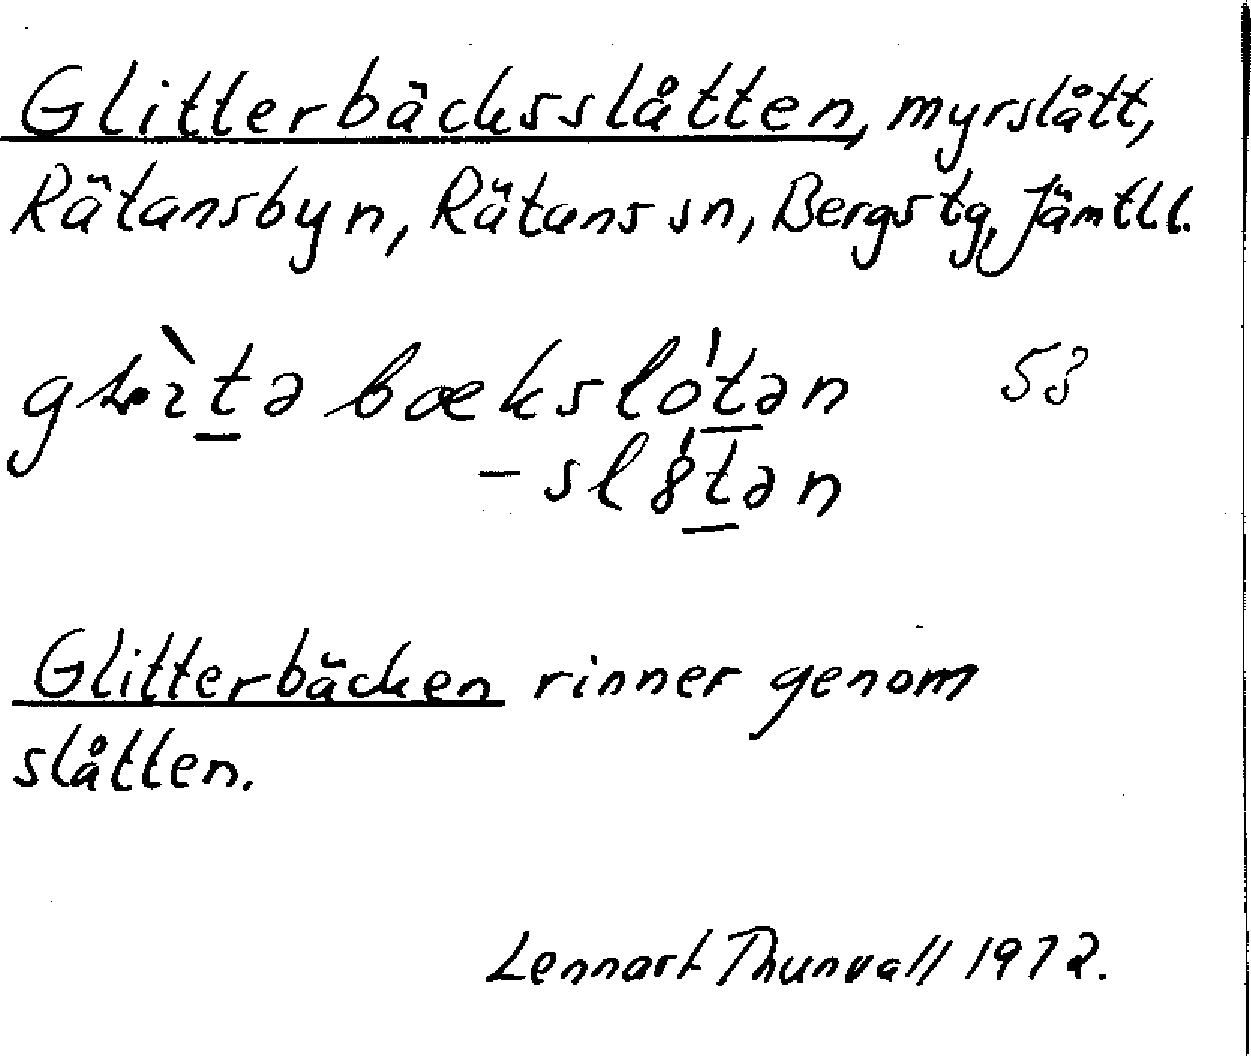 Glitterbäcksslåtten, myrslått,
Rätansbyn, Rätans sn, Bergs tg, Jämtl l.
bækslótən 53
-sl8́tən
Glitterbäcken rinner genom
slåtten.
Lennart Thunvall 1972.